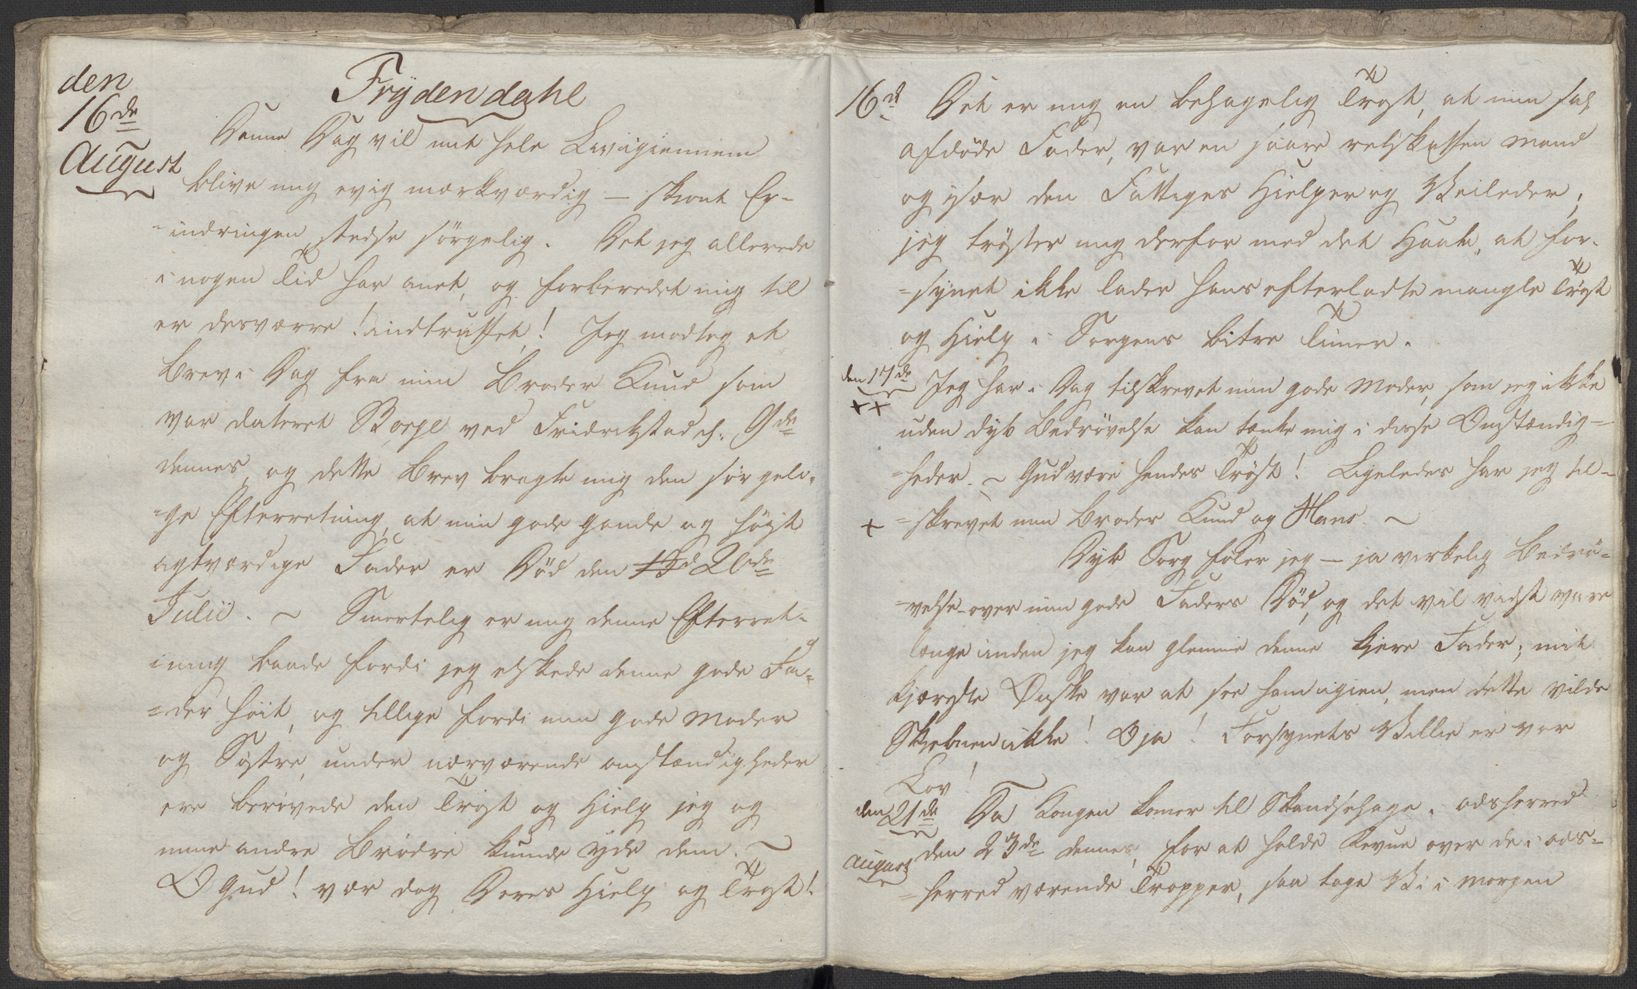 den
16de
August
Frydendahl
Denne Dag vil mit hele Liv igiennem
blive mig evig mærkværdig — skiönt Er-
indringen stedse sörgelig. Det jeg allerede
i nogen Tid har anet, og forberedet mig til
er desværre! indtruffet! Jeg modtog et
Brev i Dag fra min Broder Knud som
var dateret Borge ved Fridrikstad d. 9de
dennes, og dette Brev bragte mig den sörgeli-
-ge Efterretning, at min gode og höist
agtværdige Fader er Död den 20de
Julii. ~ Smertelig er mig denne Efterret-
ning baade fordi jeg elskede denne gode Fa-
-der höit, og tillige fordi min gode Moder
og Söstre, under nærværende omstændigheder
ere berövede den Tröst og Hielp jeg og
mine andre Brödre kunde yde dem. ~
O Gud! vær dog Deres Hielp og Tröst!
16d Det er mig en behagelig Tröst, at min sal
afdöde Fader, var en saare retskaffen Mand
og især den Fattiges Hielper og Veileder;
jeg tröster mig derfor med det Haab, at For-
-synet ikke lader hans efterladte mangle Tröst
og Hielp i Sorgens bitre Timer.
den 17de Jeg har i Dag tilskrevet min gode Moder, som jeg ikke
++ uden dyb Bedrövelse kan tænke mig i disse Omstændig-
-heder. ~ Gud være hendes Tröst! Ligeledes har jeg til-
+ -skrevet min Broder Knud og Hans. ~
Dyb Sorg föler jeg — ja virkelig Bedrö-
-velse over min gode Faders Död, og det vil vidst vare
længe inden jeg kan glemme denne kjere Fader; mit
kjæreste Önske var at see ham igien, men dette vilde
Skjebnen ikke! O ja! Forsynets Villie er vor
Lov!
den 21de Da Kongen komer til Skandsehage i odsherred
August den 23de dennes, for at holde Revue over de i ods-
-herred værende Tropper, saa tage Vi i morgen